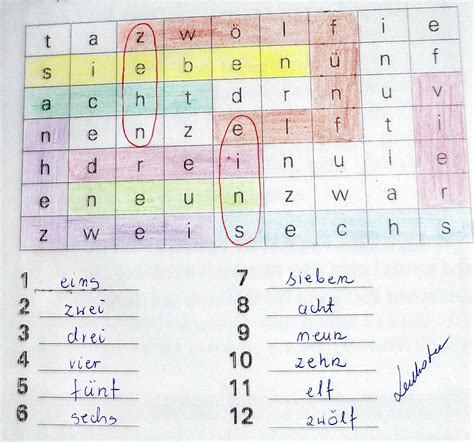 t a z w ö l f i e
s i e b e n ü n f
a c h t d r n u v
n e n z e l f t i
h d r e i n u l e
e n e u n z w a r
z w e i s e c h s
1 eins
2 zwei
3 drei
4 vier
5 fünf
6 sechs
7 sieben
8 acht
9 neun
10 zehn
11 elf
12 zwölf